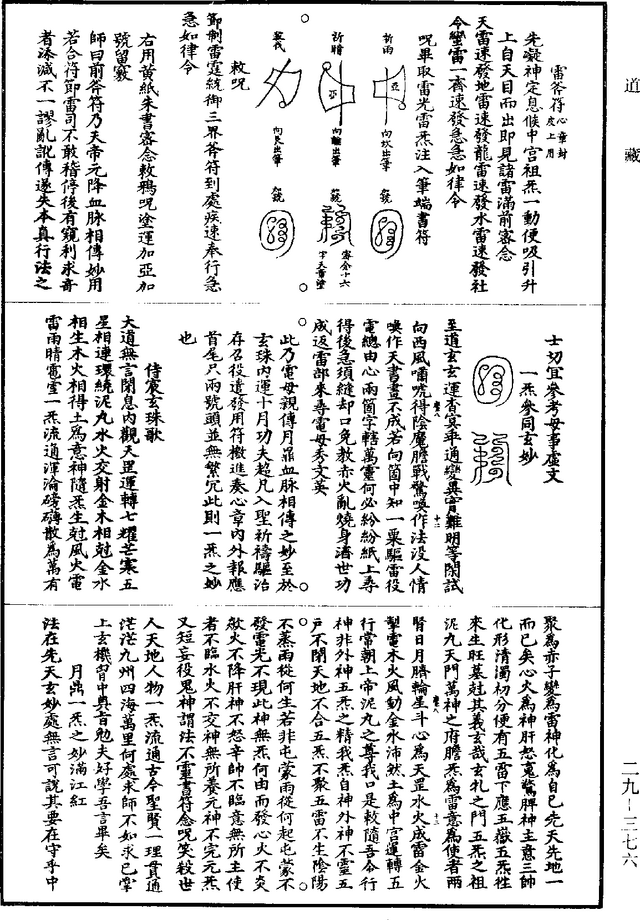 道藏
雷咨符心章封皮上用
先凝神定息候中宮祖炁一動便吸引升
上自天目而出即見諸雷滿前密念
天雷速發地雷速發龍雷速發水雷速發社
令蠻雷一齊速發急急如律令
咒畢取雷光雷炁注入筆端書符
祈雨
向坎出筆
祈晴
向離出筆
向艮出筆
敕咒
卸制雷霆統御三界咨符到處疾速奉行急
急如律令
右用黃紙朱書密念敕鴉咒塗運加亞加
號留竅
師曰前咨符乃天帝元降血脉相傳妙用
若合符節雷司不敢稽停後有窺利求奇
者添減不一謬亂訛傳遂失本真行法之
士切宜參考毋事虛文
一炁參同玄妙
至道玄玄運杳冥平通變異實難明等閑試
向西風嘯唬得陰魔膽戰驚喚作法沒人情
喚作天書畫不成若向箇中知一粟驅雷役
電總由心兩箇字轄萬靈何必紛紛紙上尋
得後急須縫却口免教赤火亂燒身濟世功
成返雷部來尋電母秀文英
此乃電母親傳月鼎血脉相傳之妙至於
玄珠內運十月功夫超凡入聖祈禱驅治
存召役遣發用符檄進奏心章內外報應
首尾只兩號頭並無繁冗此則一炁之妙
也
侍宸玄珠歌
大道無言閉息內觀天罡運轉七耀芒寒五
星相連環繞泥丸水火交射金木相尅金水
相生木火相得土為意神隨炁生尅風火電
雷雨晴電雪一炁流通渾淪磅礴散為萬有
聚為赤子變為雷神化為自己先天先地一
而已矣心火為神肝怒鬼驚脾神主意三帥
化形清濁初分便有五雷下應五嶽五炁性
來生旺墓尅其義玄哉玄牝之門五炁之祖
泥丸天門萬神之府膽炁為雷意為使者兩
腎日月臍輪星斗心為天罡水火成雷金火
掣電木火風動金水沛然土為中宮運轉五
行常朝上帝泥丸之尊我口是敕隨吾令行
神非外神五炁之精我炁自神外神不靈五
戶不閉天地不合五炁不聚五雷不生陰陽
不蒸雨從何生若非屯蒙雨從何起屯蒙不
發電光不現此神無炁何由而發心火不炎
欻火不降肝神不怒辛帥不臨意無所主使
者不臨水火不交神無所養元神不完元炁
又短妄役鬼神謂法不靈書符念咒笑殺世
人天地人物一炁流通古今聖賢一理貫通
茫茫九州四海萬里何處求師不如求己掌
上玄機胃中真旨勉夫好學吾言畢矣
月鼎一炁之妙滿江紅
法在先天玄妙處無言可說其要在守乎中
二九—三七六